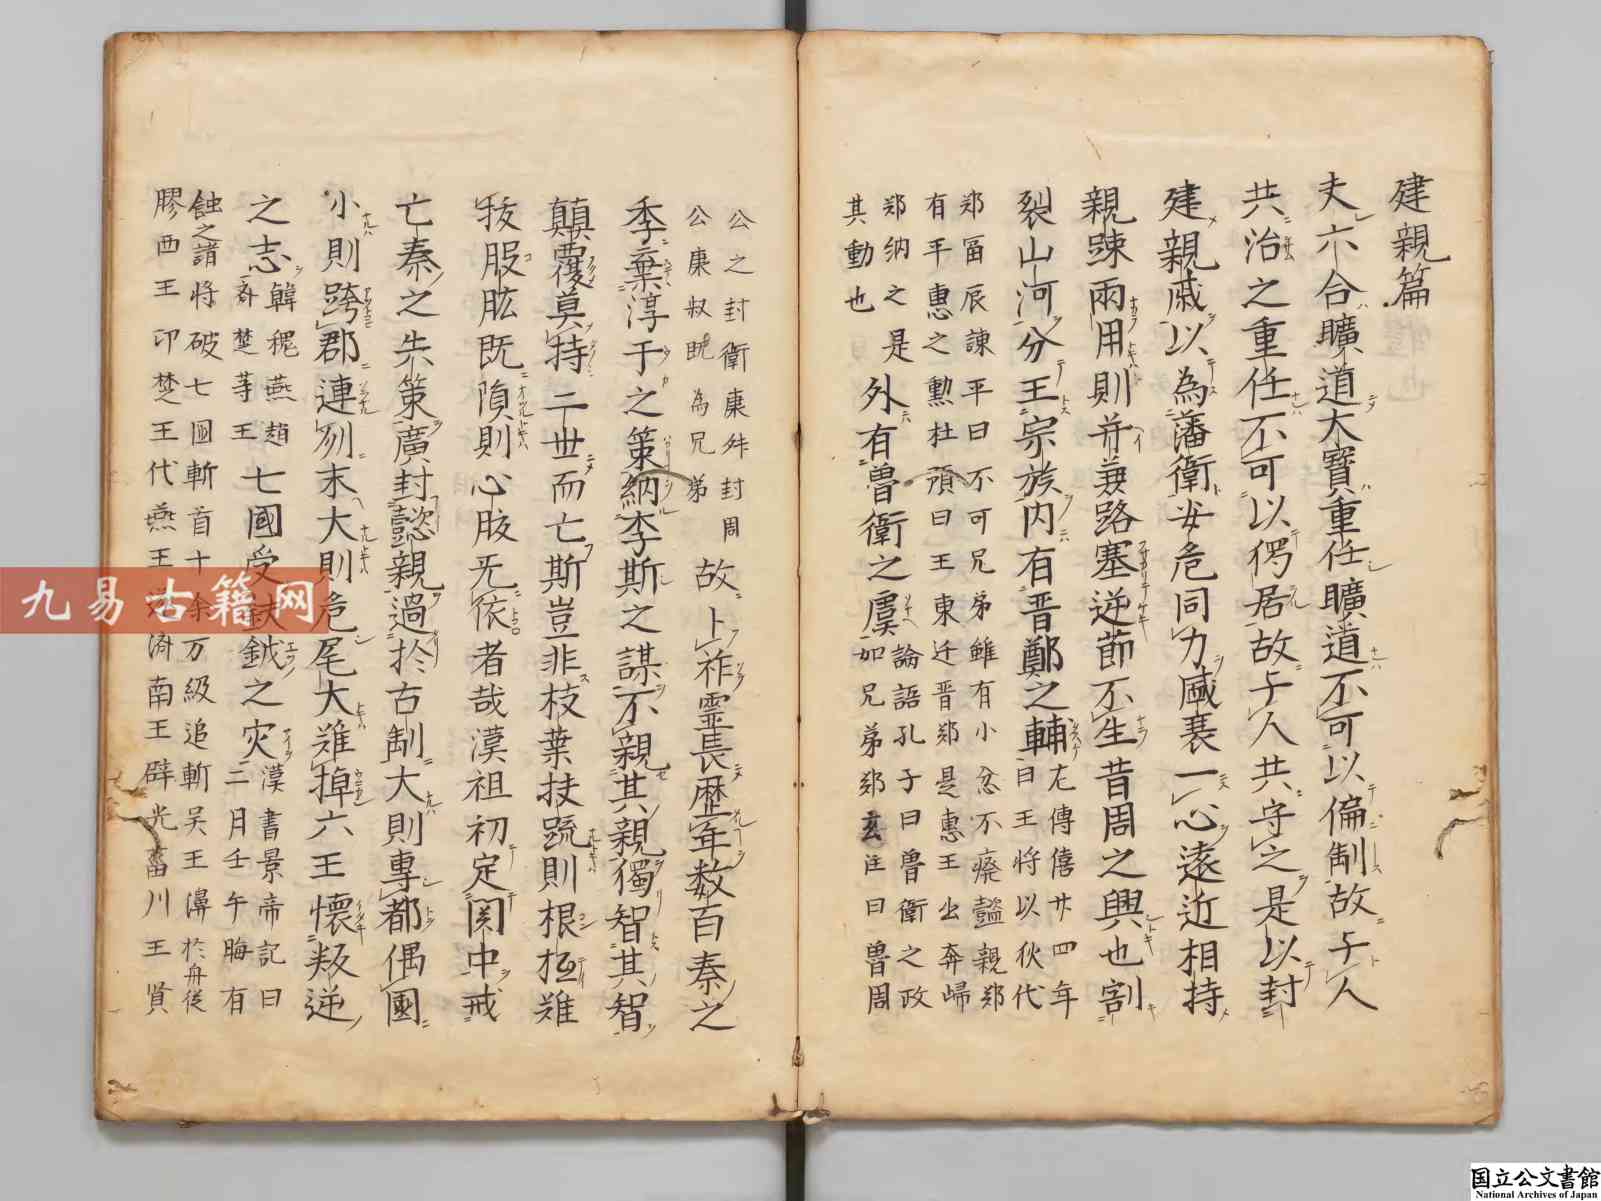 建親篇
夫六合曠道大寶重任曠道不可以偏制故与人
共治之重任不可以獨居故与人共守之是以封
建親戚以為藩衛安危同力盛衰一心遠近相持
親踈兩用則并兼路塞逆節不生昔周之興也割
裂山河分王宗族内有晋鄭之輔
左傳僖廿四年
曰王将以狄代
郑冨辰諌平曰不可兄弟雖有小忿不廃懿親郑
有平惠之勲杜預曰王東迁晋郑是惠王出奔帰
郑納之是
外有魯衛之虞
論語孔子曰魯衛之政
如兄弟郑玄注曰魯周
其動也
公之封衛康舛封周
公康叔既為兄弟
故卜祚霊長歴年数百秦之
季棄淳于之策納李斯之謀不親其親獨智其智
顛覆莫恃二世而亡斯豈非枝葉扶疏則根柢難
拔股肱既隕則心腹无依者哉漢祖初定関中戒
亡秦之失策廣封懿親過於古制大則専都偶國
小則跨郡連列末大則危尾大難掉六王懐叛逆
之志
韓䅏燕趙
齐楚等王
七國受鈇鉞之灾
漢書景帝記曰
二月壬午晦有
蝕之諸将破七國斬首十余万級追斬吴王濞於舟徒
膠西王卬楚王代燕王遂済南王辟光菑川王賢
九易古籍网
国立公文書館
National Archives of Japan